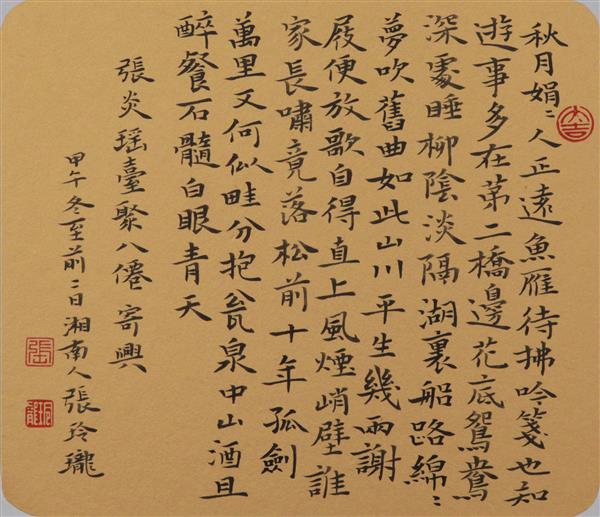 秋月娟〻人正遠魚雁待拂吟箋也知
遊事多在苐二橋邊花底鴛鴦
深處睡柳陰淡隔湖裏船路綿〻
夢吹舊曲如此山川平生幾兩謝
屐便放歌自得直上風煙峭壁誰
家長嘯竟落松前十年孤劍
萬里又何似畦分抱瓮泉中山酒且
醉餐石髓白眼青天
張炎瑶臺聚八僊 寄興
甲午冬至前二日湘南人張玲瓏
大吉
張